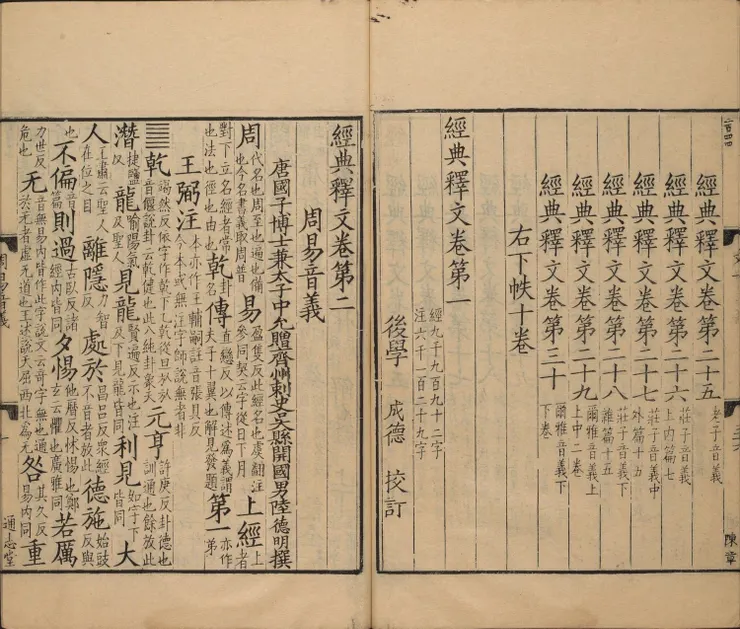 經典釋文卷第二十五 老子音義
經典釋文卷第二十六 莊子音義上內篇七
經典釋文卷第二十七 莊子音義中外篇十五
經典釋文卷第二十八 莊子音義下雜篇十五
經典釋文卷第二十九 爾雅音義上上中二卷
經典釋文卷第三十 爾雅音義下下卷
右下帙十卷
經典釋文卷第一 經九千九百九十二字注六千一百二十九字
後學 成德 校訂
陳章
經典釋文卷第二
周易音義
唐國子博士兼太子中允贈齊州刺史吳縣開國男陸德明撰
周代名也周至也遍也備也今名書義取周普易盈隻反此經名也虞翻注參同契云字從日下月上經上者
對下立名經者常也法也徑也由也乾卦名傳直戀反以傳述為義謂夫子十翼也解見發題第一亦作弟
王弼注本亦作王輔嗣註音張具反今本或無注字師說無者非
乾竭然反依字作乾下乙乾從旦㫃音偃說卦云乾健也此八純卦象天元亨許庚反卦德也訓通也餘放此
潛捷鹽反龍喻陽氣及聖人見龍賢遍反示也注及下見龍皆同利見如字下皆同大
人王肅云聖人在位之目離隱力智反處於昌呂反眾經不音者放此德施始豉反與
也不偏音篇則過古臥反諸經內皆同夕惕他歷反怵惕也鄭玄云懼也廣雅同若厲
力世反危也无音無易內皆作此字說文云奇字無也通於元者虛无道也王述說天屈西北為无咎其久反易內同重
周易音義
通志堂